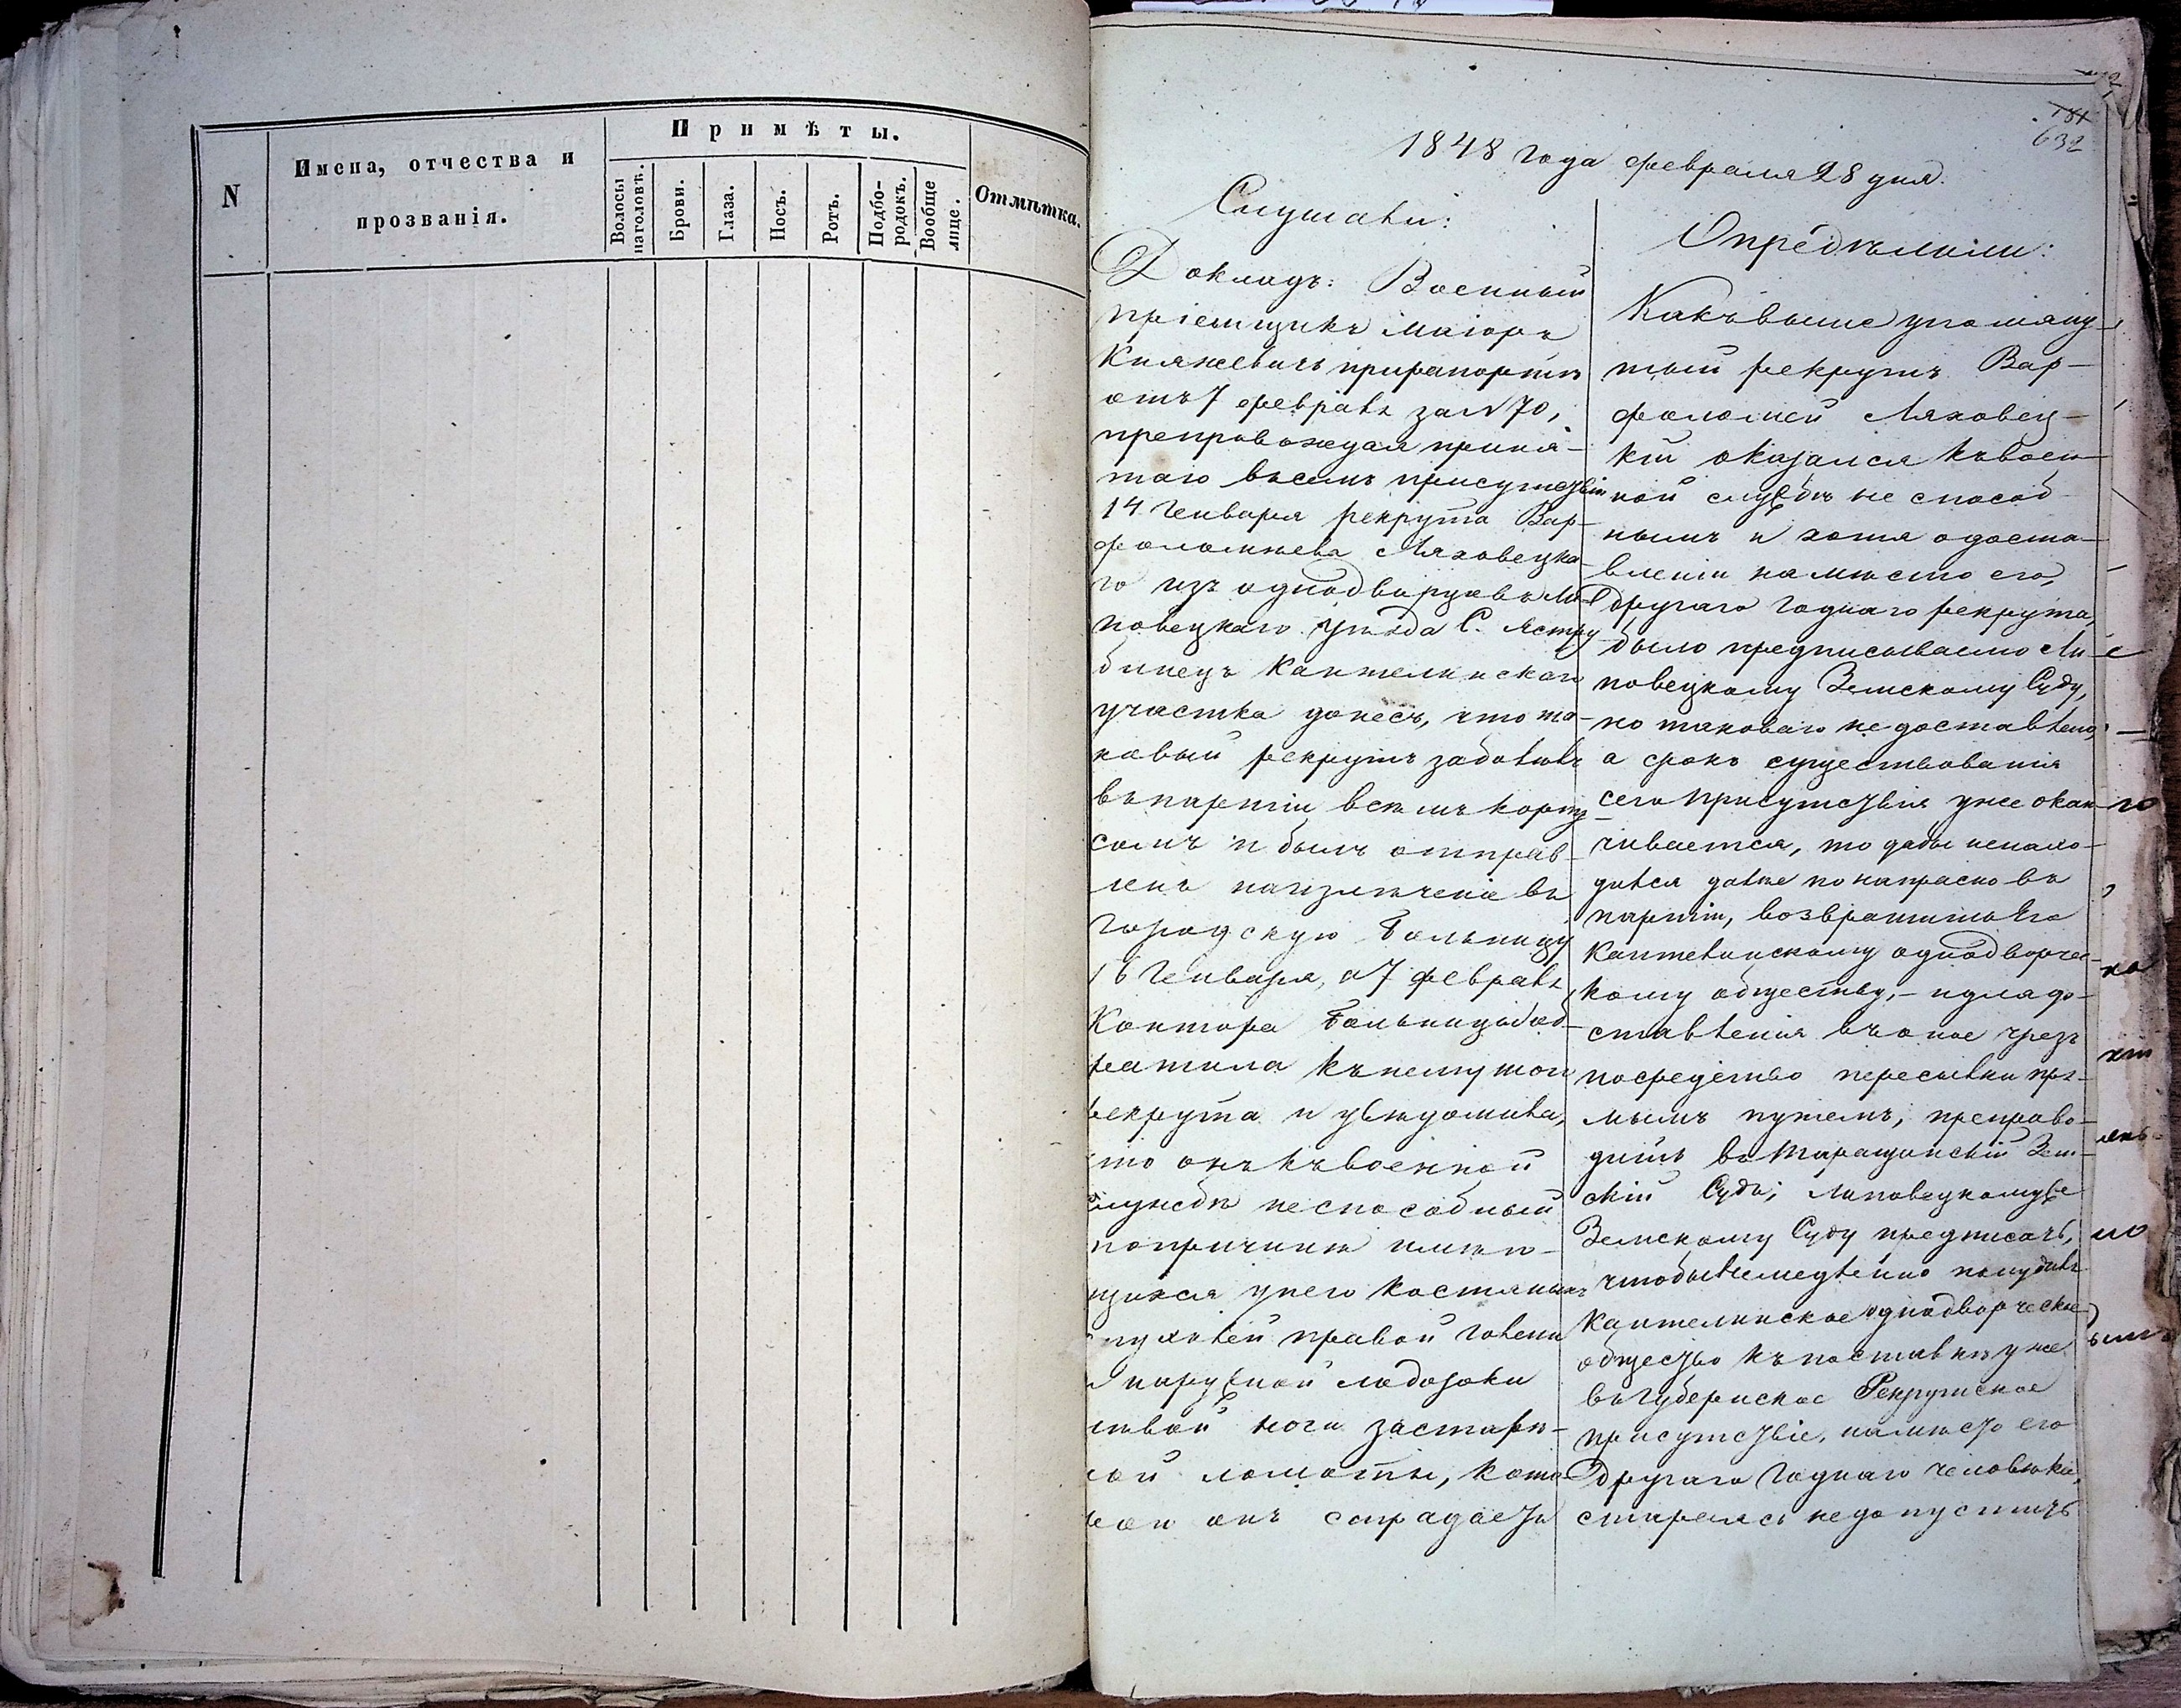 N
Имена, отчества и
прозванія.
Примѣты.
Волосы
наголовѣ.
Брови.
Глаза.
Носъ.
Ротъ.
Подбо-
родокъ.
Вообще
лице.
Отмѣтка.
632
1848 года февраля 28 дня.
Слушали:
Докладъ: Военный
пріемщикъ Маіоръ
Княжевичъ прирапортѣ
отъ 7 февраля за N 70,
препровождая приня-
таго въсемъ присутствіи
14 Генваря рекрута Вар-
фоломѣева Ляховецка-
го изъ однодворцовъ Ли-
повецкаго уѣзда С. Ястру
бинецъ Кантелинскаго
участка донесъ, что та-
ковый рекрутъ заболѣлъ
въпартіи
и былъ отправ-
ленъ наизлѣченіе въ
Городскую Больницу
16 Генваря, а 7 февраля
Контора Больницы воз-
ратила кънему того
рекрута и увѣдомила,
что онъ къвоенной
службѣ неспособный
попричинѣ имѣю-
щихся унего костяныхъ
опухолей правой голени
и наружной лодыжки
лѣвой ноги застарѣ-
лой ломоты, кото-
рой онъ страдаетъ
Опредѣлили:
Какъ выше упомяну-
тый рекрутъ Вар-
фоломей Ляховец-
кій оказался къвоен-
ной службѣ не способ-
нымъ и хотя одоста-
вленіи намѣсто его,
другаго годнаго рекрута,
было предписываемо Ли-
повецкому Земскому Суду,
но таковаго не доставлено,
а срокъ существованія
сего Присутствія уже окан-
чивается, то дабы ненахо-
дился далѣе понапрасно въ
партіи, возвратить его
Кантелинскому однодворчес-
кому обществу, – идля до-
ставленія въоное чрезъ
посредство пересылки пря-
мымъ путемъ, препрово-
дить въ Таращанскій Зем-
скій Судъ; Липовецкомуже
Земскому Суду предписать,
чтобы немедленно понудилъ
Кантелинское однодворческое
общество къпоставкѣ уже
въ Губернское Рекрутское
присутствіе, намѣсто его
другаго годнаго человѣка,
стараясь недопустить